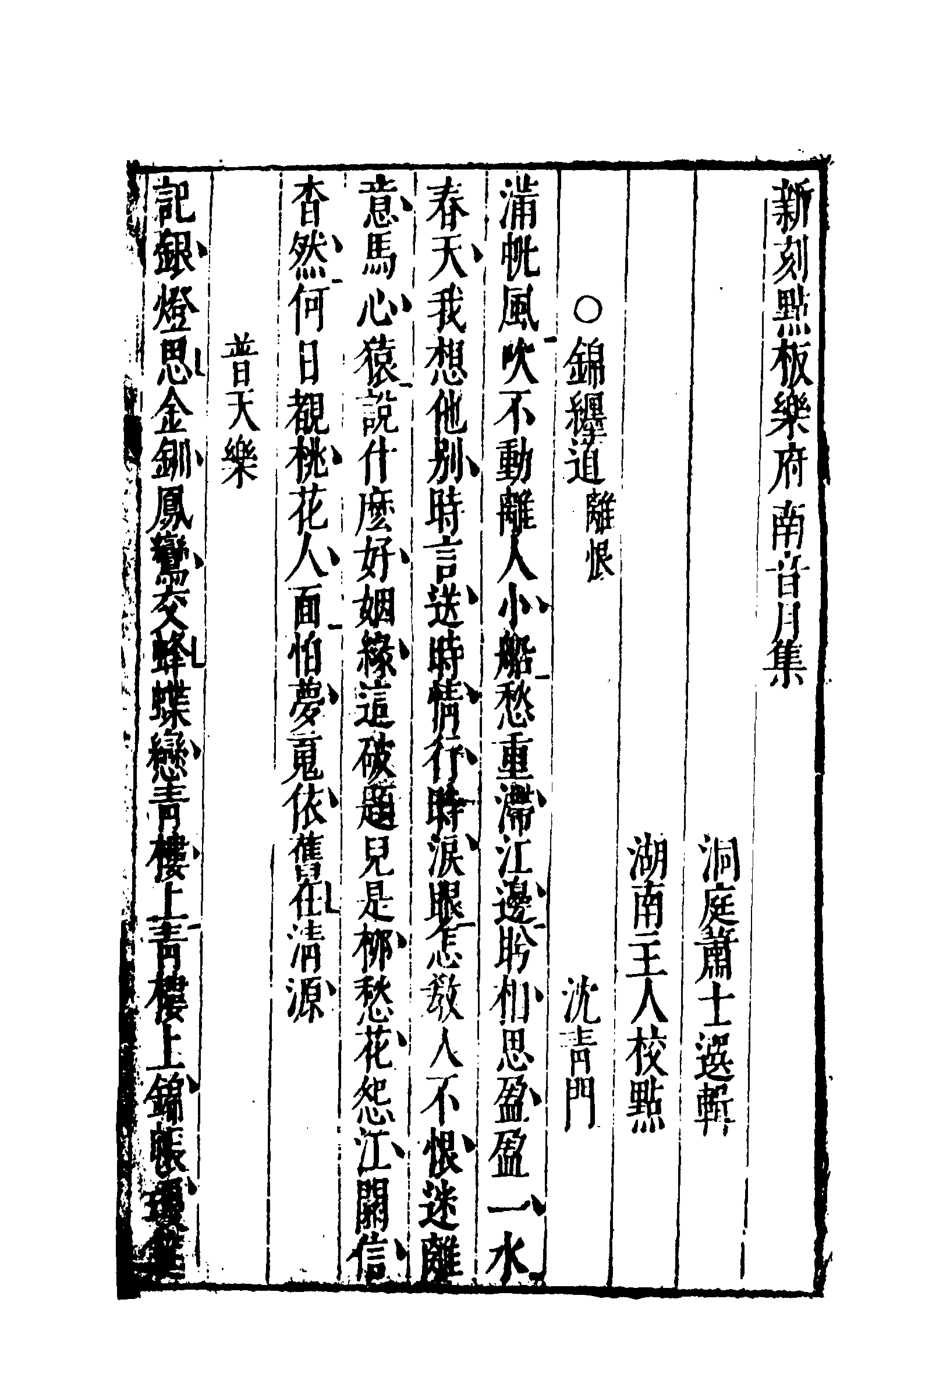 新刻點板樂府南音月集
洞庭蕭士選輯
湖南主人校點
○錦纏道離恨 沈青門
滿帆風吹不動離人小船愁重滯江邊盻相思盈盈一水
春天我想他別時言送時情行時淚眼怎敎人不恨迷離
意馬心猿說什麼好姻緣這破題兒是柳愁花怨江關信
杳然何日覩桃花人面怕夢䰟依舊在清源
普天樂
記銀燈思金釧鳳鸞交蜂蝶戀青樓上青樓上錦帳